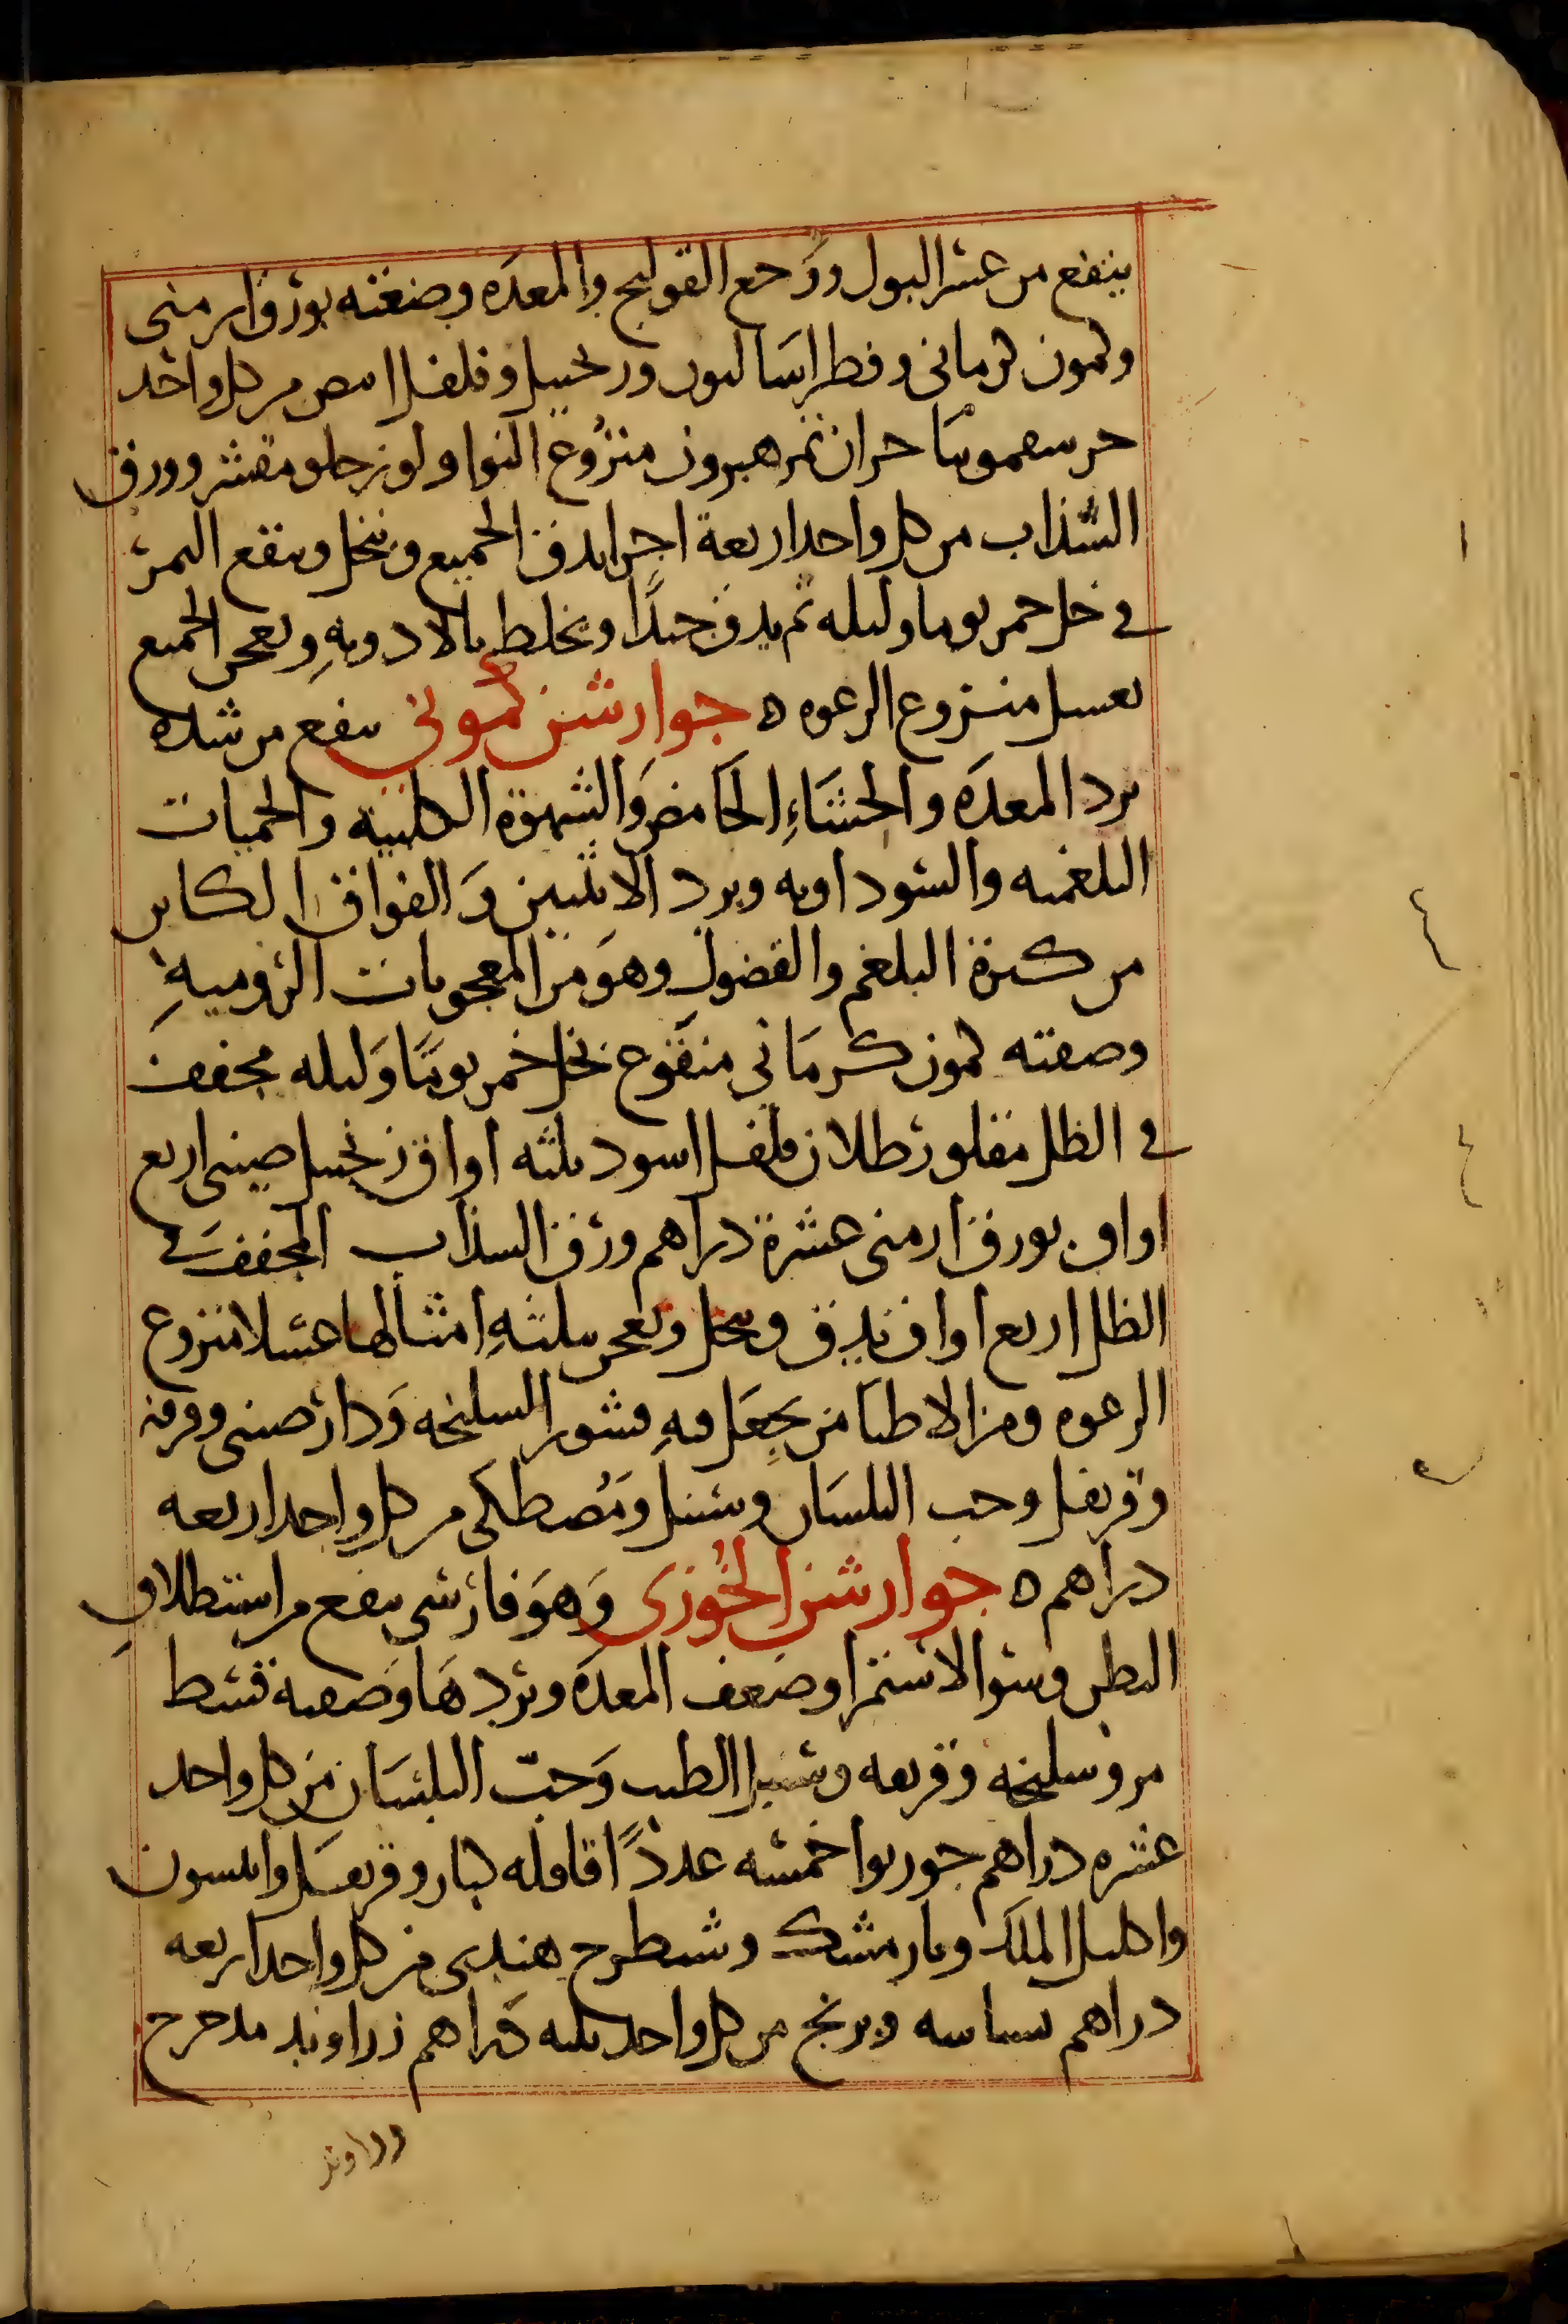 ينفع من عسر البول ووجع القولنج والمعده وصنعته بورق ارمنى
وكمون كرمانى وفطراساليون وزنجبيل وفلفل ابيض من كل واحد
جز سقمونيا جزان تمر هيرون منزوع النوا ولوز حلو مقشر وورق
السذاب من كل واحد اربعة اجزا يدق الجميع وينخل وينقع التمر
في خل خمر يوما وليله ثم يدق جيدًا ويخلط بالادويهِ ويعجن الجميع
بعسل منزوع الرغوه ه جوارشن كموني ينفع من شده
برد المعدَه والجشَاءِ الحَامض وَالشهوة الكلبيه والحميات
البلغميه والسوداويه وبرد الانثيين وَالفواق الكاين
من كثرة البلغم والفضول وهوَ من المعجونات الروميهِ
وصفته كمون كرمَاني منقوع بخل خمر يومًا وَليله مجفف
في الظل مقلو رطلان فلفل اسود ثلثه اواق زنجبيل صينى اربع
اواق بورق ارمنى عشرة دراهم ورق السذاب المجفف في
الظل اربع اواق يدق وينخل ويعجن بثلثهِ امثالها عسلا منزوع
الرغوه ومن الاطبا من يجعَل فيهِ قشور السليخه وَدار صينى وقرفه
وقرنفل وحب البلسان وسنبل ومُصطكى من كل واحد اربعه
دراهم ه جوارشن الخُوزى وَهوَ فارسى ينفع من استطلاقِ
البطن وسو الاستمرا وضعف المعدَه وبردهَا وصَفته قسط
مر وسليخه وقرفه وسنبل الطيب وَحبّ البلسَان من كل واحد
عشره دراهم جوزبوا خمسه عددًا قاقله كبار وقرنفل وانيسون
واكليل الملك ونارمشك وشيطرج هندى من كل واحد اربعه
دراهم بسباسه وبرنج من كل واحد ثلثه دَراهم زراوند مدحرج
زراوند